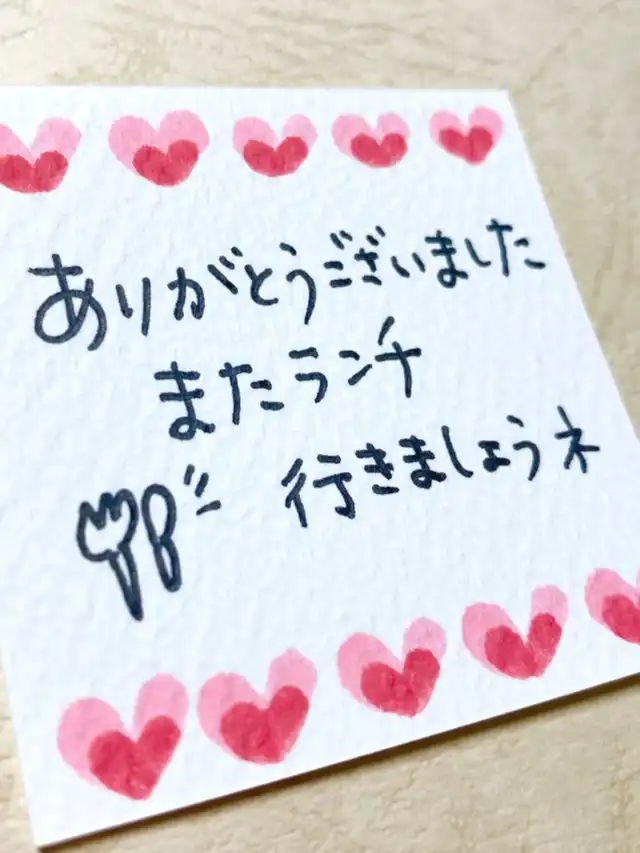 ありがとうございました
またランチ
行きましょうネ